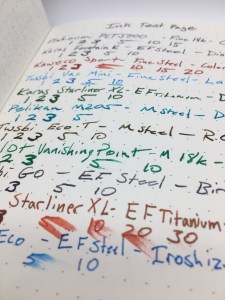 Ink Test Page
PLT5000 - Fine 14k - C
2 3 5 10 15
Karas Fountain K - EF Steel - Dia
2 3 5 10
Kaweco Sport Fine Steel - Color
1 2 3 5 10 15 20
Twsbi Vac Mini - Fine Steel - La
1 2 3 5 10
Karas Starliner XL - EF Titanium - D
1 2 3 5 10
Pelikan M205 - M Steel - D
1 2 3 5 10
Twsbi Eco-T - M Steel - R.O
1 2 3 5 10
Vanishing Point - M 18k -
2 3 5 10
Go - EF Steel - Bir
3 5 10
Starliner XL - EF Titanium
3 5 10 20 30
Eco - EF Steel - Iroshiz
5 10